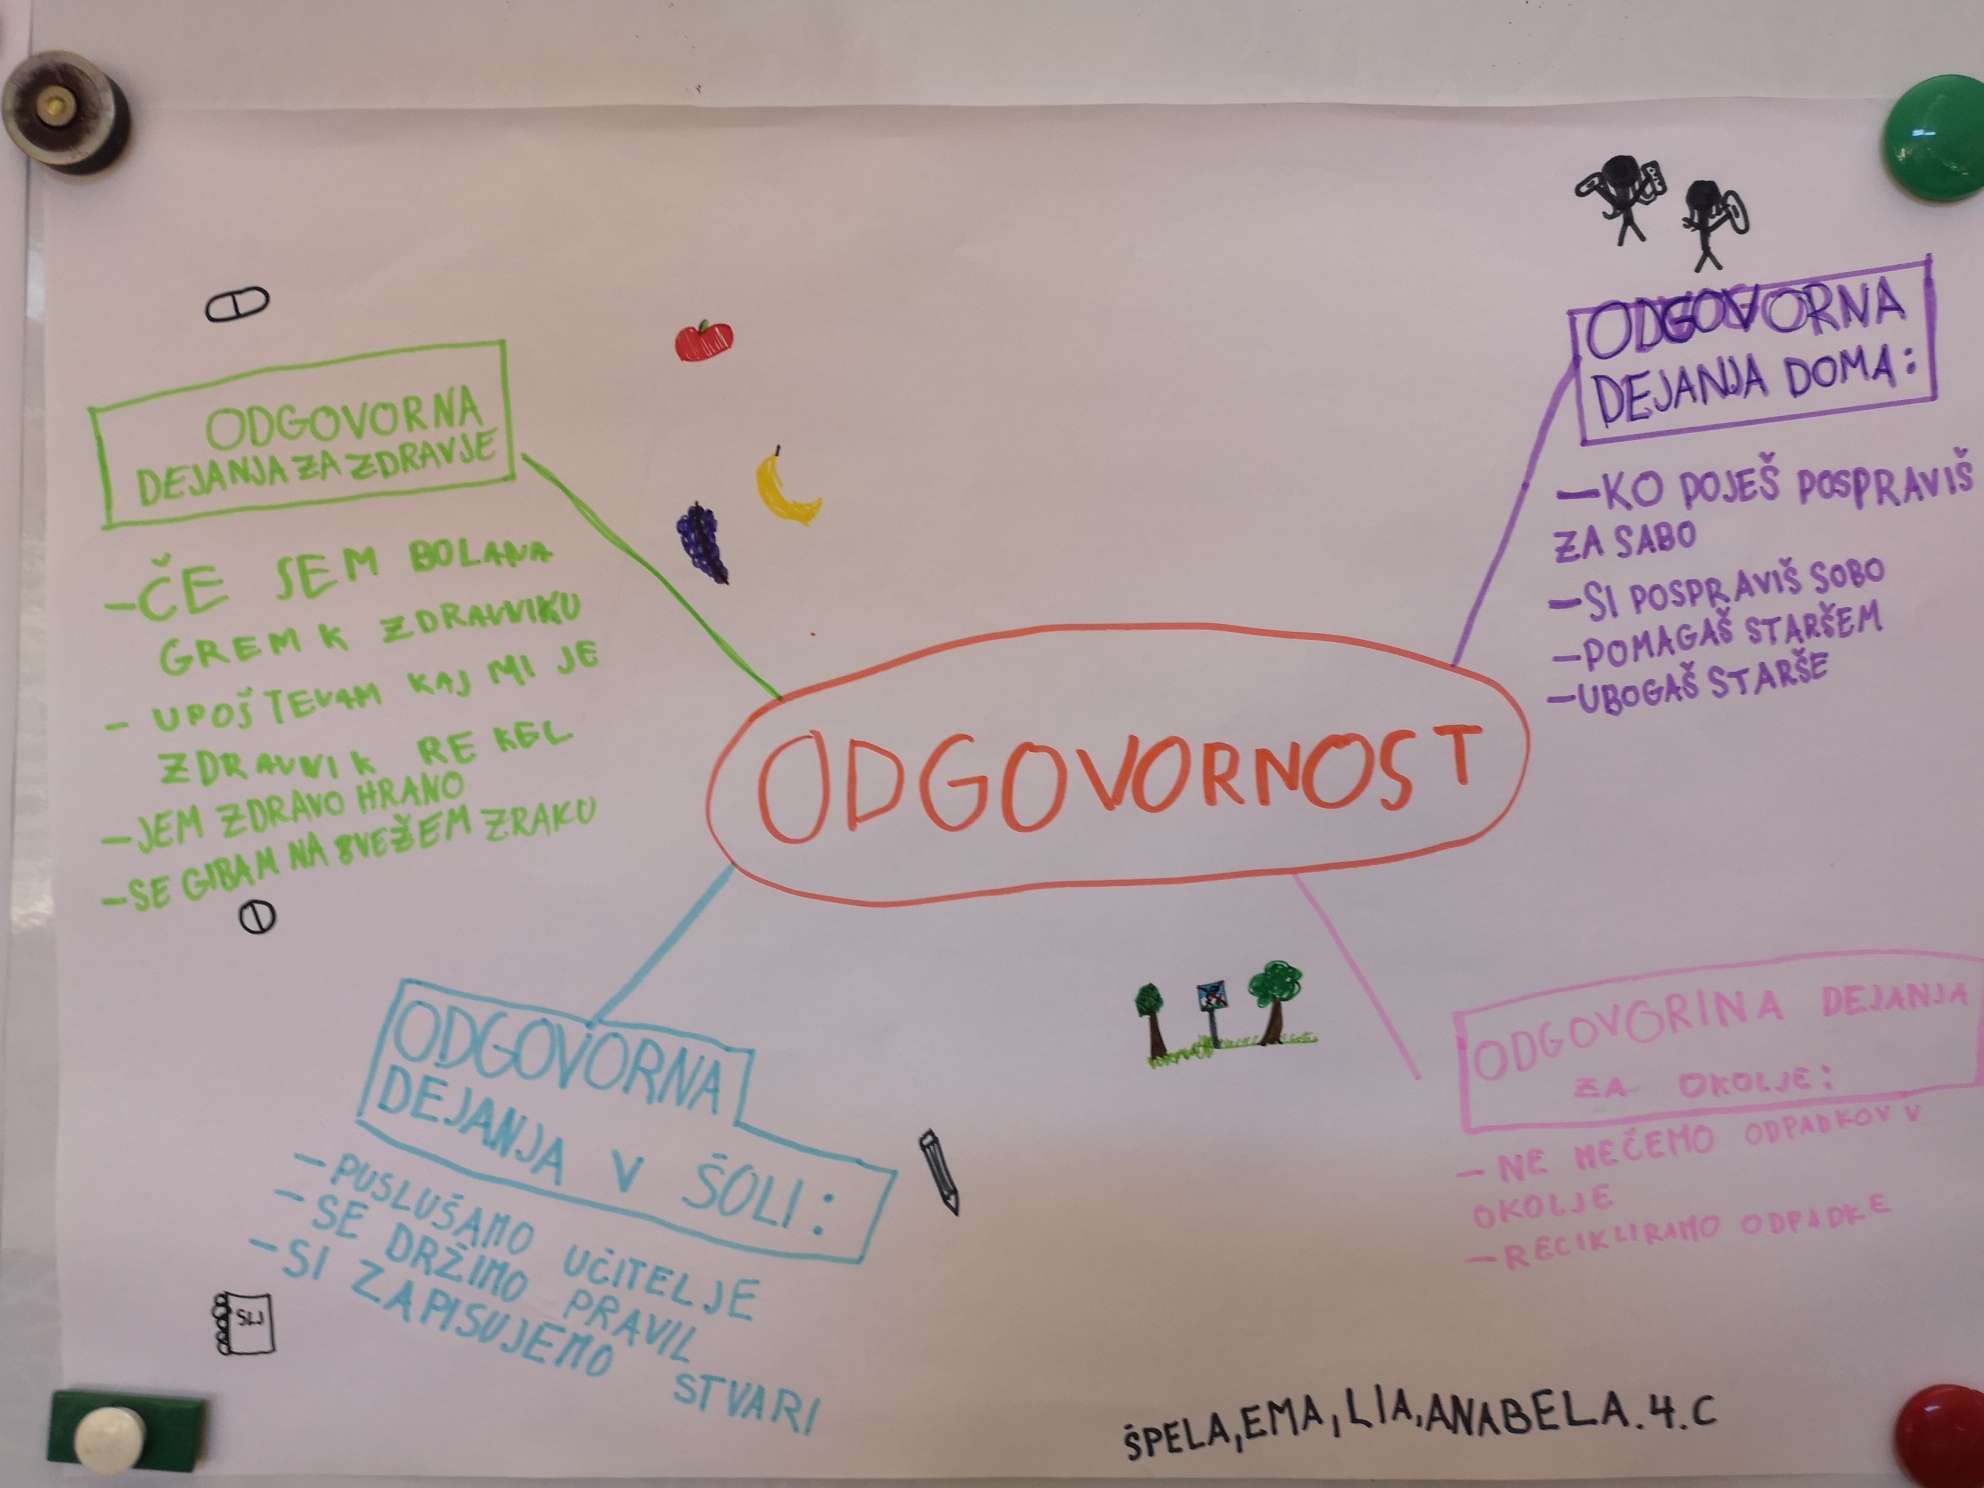 ODGOVORNOST
ODGOVORNA
DEJANJA ZA ZDRAVJE
-ČE SEM BOLANA
GREM K ZDRAVNIKU
- UPOŠTEVAM KAJ MI JE
ZDRAVNIK REKEL
-JEM ZDRAVO HRANO
-SE GIBAM NA SVEŽEM ZRAKU
ODGOVORNA
DEJANJA DOMA:
-KO POJEŠ POSPRAVIŠ
ZA SABO
-SI POSPRAVIŠ SOBO
-POMAGAŠ STARŠEM
-UBOGAŠ STARŠE
ODGOVORNA
DEJANJA V ŠOLI:
-PUSLUŠAMO UČITELJE
-SE DRŽIMO PRAVIL
-SI ZAPISUJEMO STVARI
SLJ
ODGOVORINA DEJANJA
ZA OKOLJE:
-NE MEČEMO ODPADKOV V
OKOLJE
-RECIKLIRAMO ODPADKE
ŠPELA, EMA, LIA, ANABELA. 4. C